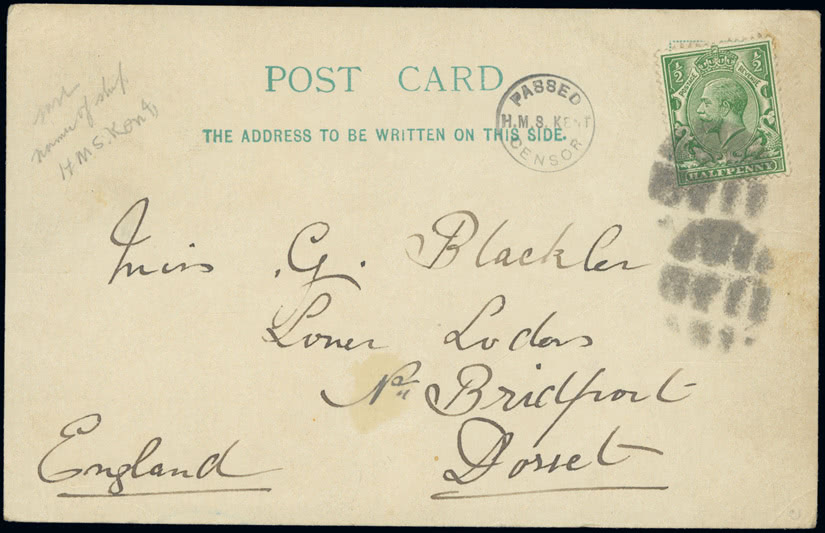 POST CARD
THE ADDRESS TO BE WRITTEN ON THIS SIDE.
name of ship
H.M.S. Kent
PASSED
H.M.S. KENT
CENSOR
½ ½
POSTAGE REVENUE
HALFPENNY
Miss G. Blackler
Lower Loders
Nr Bridport
Dorset
England